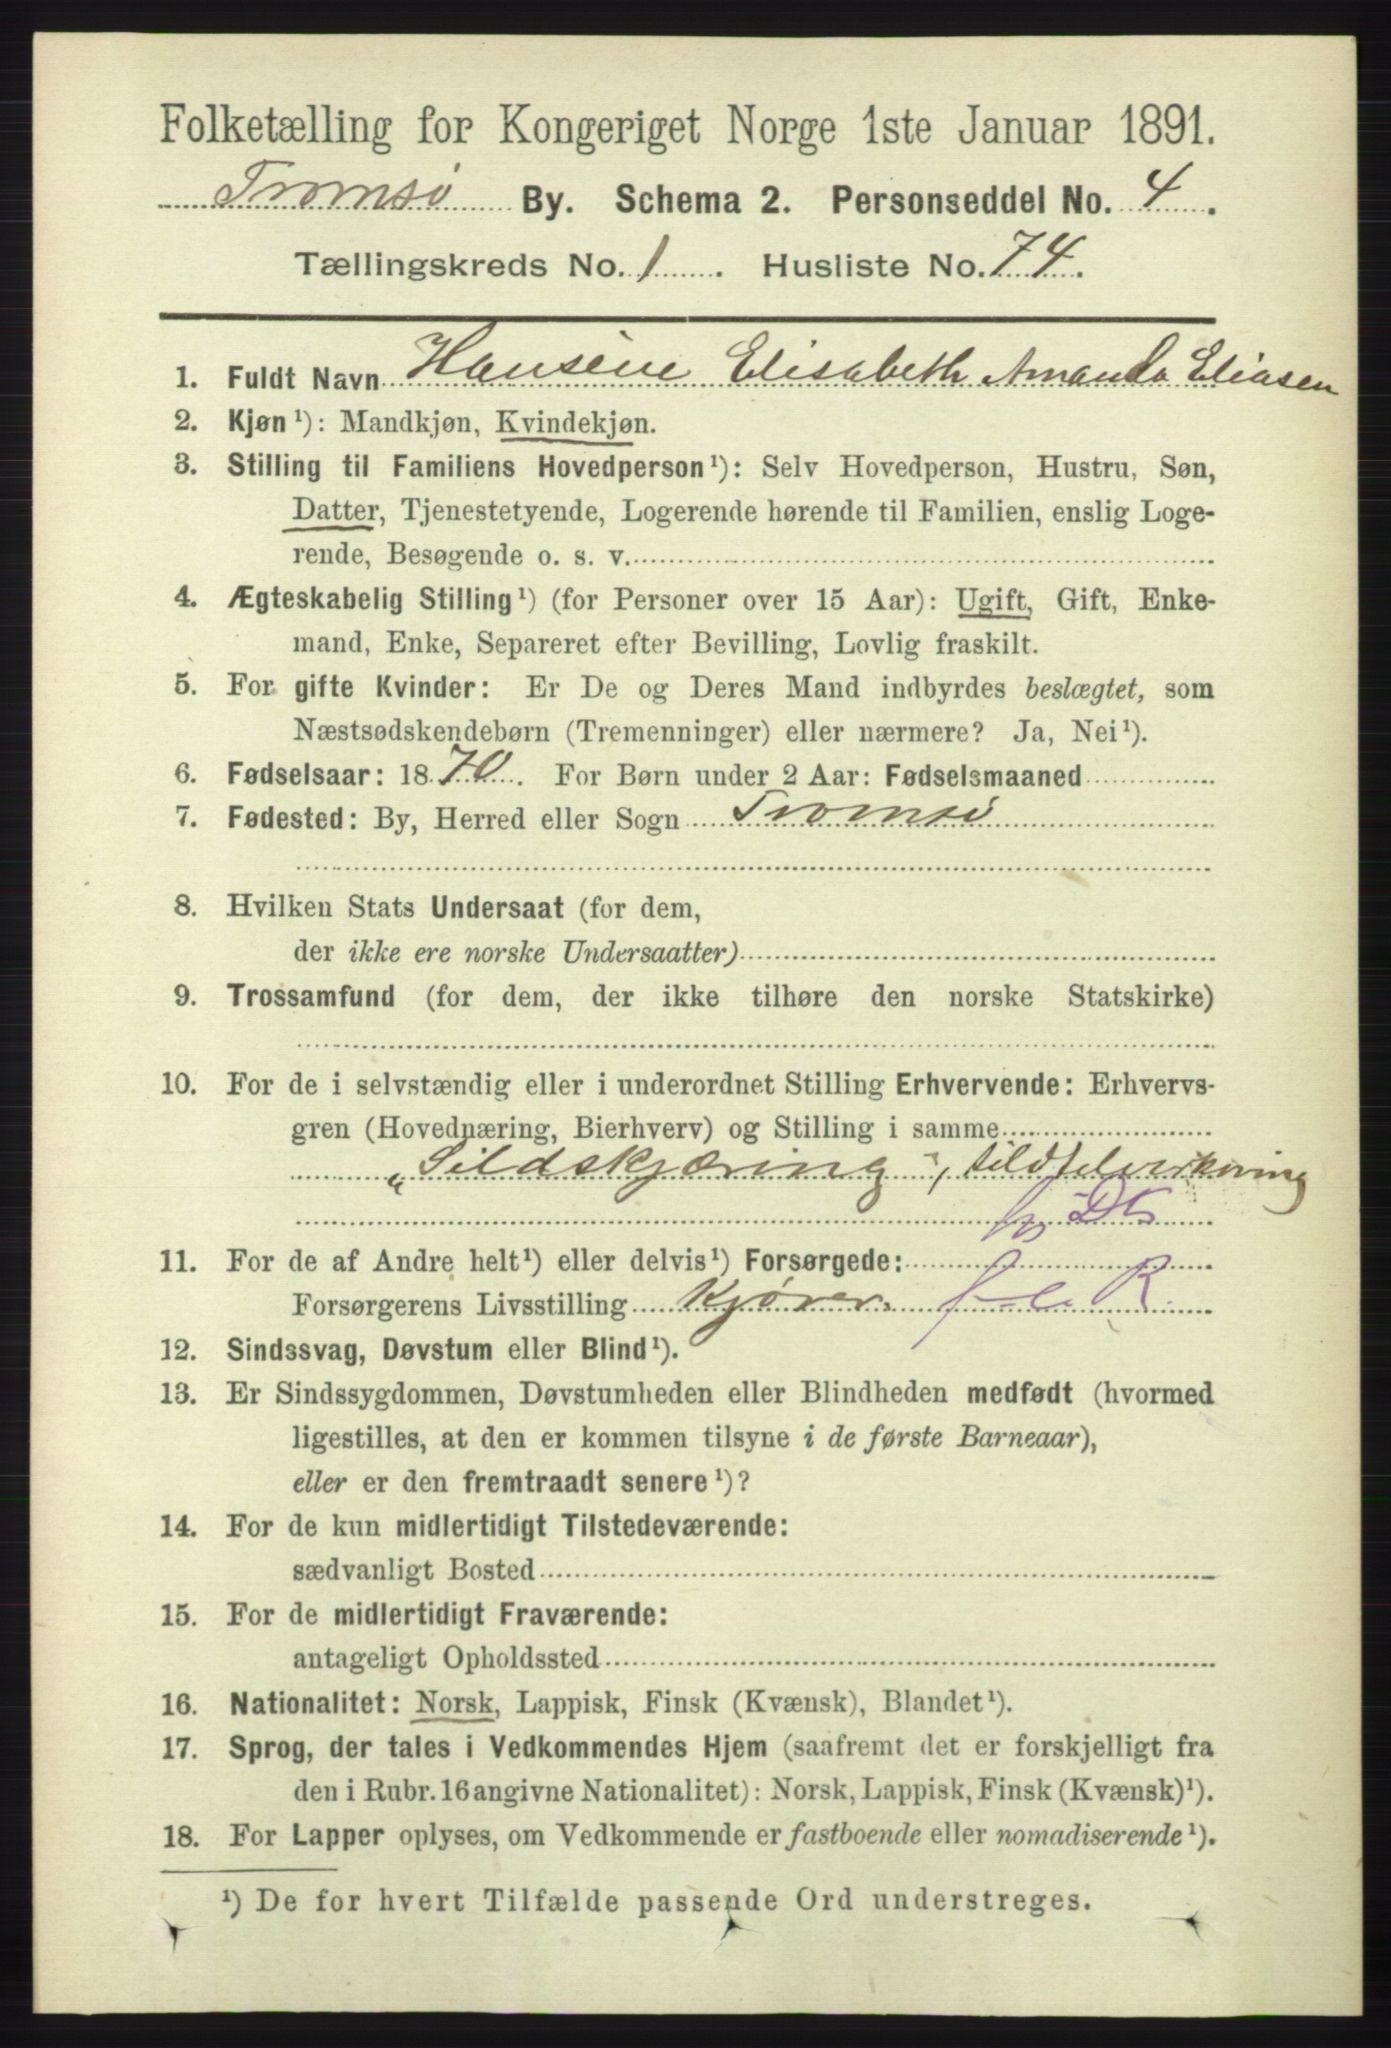 Folketælling for Kongeriget Norge 1ste Januar 1891.
Tromsø By. Schema 2. Personseddel No. 4.
Tællingskreds No. 1. Husliste No. 74.
1. Fuldt Navn Hansine Elisabeth Amanda Eliasen
2. Kjøn¹): Mandkjøn, Kvindekjøn.
3. Stilling til Familiens Hovedperson¹): Selv Hovedperson, Hustru, Søn,
Datter, Tjenestetyende, Logerende hørende til Familien, enslig Loge-
rende, Besøgende o. s. v.
4. Ægteskabelig Stilling¹) (for Personer over 15 Aar): Ugift, Gift, Enke-
mand, Enke, Separeret efter Bevilling, Lovlig fraskilt.
5. For gifte Kvinder: Er De og Deres Mand indbyrdes beslægtet, som
Næstsødskendebørn (Tremenninger) eller nærmere? Ja, Nei¹).
6. Fødselsaar: 1870. For Børn under 2 Aar: Fødselsmaaned
7. Fødested: By, Herred eller Sogn Tromsø
8. Hvilken Stats Undersaat (for dem,
der ikke ere norske Undersaatter)
9. Trossamfund (for dem, der ikke tilhøre den norske Statskirke)
10. For de i selvstændig eller i underordnet Stilling Erhvervende: Erhvervs-
gren (Hovednæring, Bierhverv) og Stilling i samme
„Sildskjæring",
11. For de af Andre helt¹) eller delvis¹) Forsørgede:
Forsørgerens Livsstilling Kjører.
12. Sindssvag, Døvstum eller Blind¹).
13. Er Sindssygdommen, Døvstumheden eller Blindheden medfødt (hvormed
ligestilles, at den er kommen tilsyne i de første Barneaar),
eller er den fremtraadt senere¹)?
14. For de kun midlertidigt Tilstedeværende:
sædvanligt Bosted
15. For de midlertidigt Fraværende:
antageligt Opholdssted
16. Nationalitet: Norsk, Lappisk, Finsk (Kvænsk), Blandet¹).
17. Sprog, der tales i Vedkommendes Hjem (saafremt det er forskjelligt fra
den i Rubr. 16 angivne Nationalitet): Norsk, Lappisk, Finsk (Kvænsk)¹).
18. For Lapper oplyses, om Vedkommende er fastboende eller nomadiserende¹).
¹) De for hvert Tilfælde passende Ord understreges.